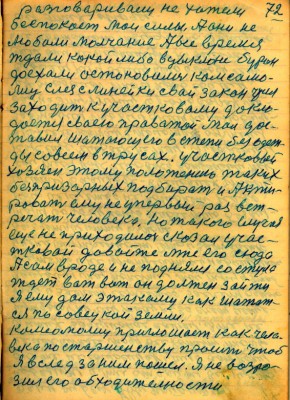 72
разговариваем не хотели
беспокоет мои слезы Аони не
любят молчание Авсе время
ждали какой либо
доехали остановились комсамо-
лиц слез слинейки свай закон учил
заходит кучастковому докло-
дает своего провотой мол дос-
тавил шатающего в степи без одеж-
ды совсем втрусах. участковый
хозяен этому положению таких
безпризорных подбират и Акти-
ровать ему не упервый раз вст-
речат человека, но такого случая
еще не приходилос сказал учас-
тковай давайте мне его сюда
Асам вроде и не поднялся состула
ждет вот вот он должен зайти
Я ему дам этакаму как шатат-
ся по совецкой земли.
комсомолиц приглошает как чело-
века постаршенству проить чтоб
Я вслед заним пошел. Я не возро-
зил его обходителности